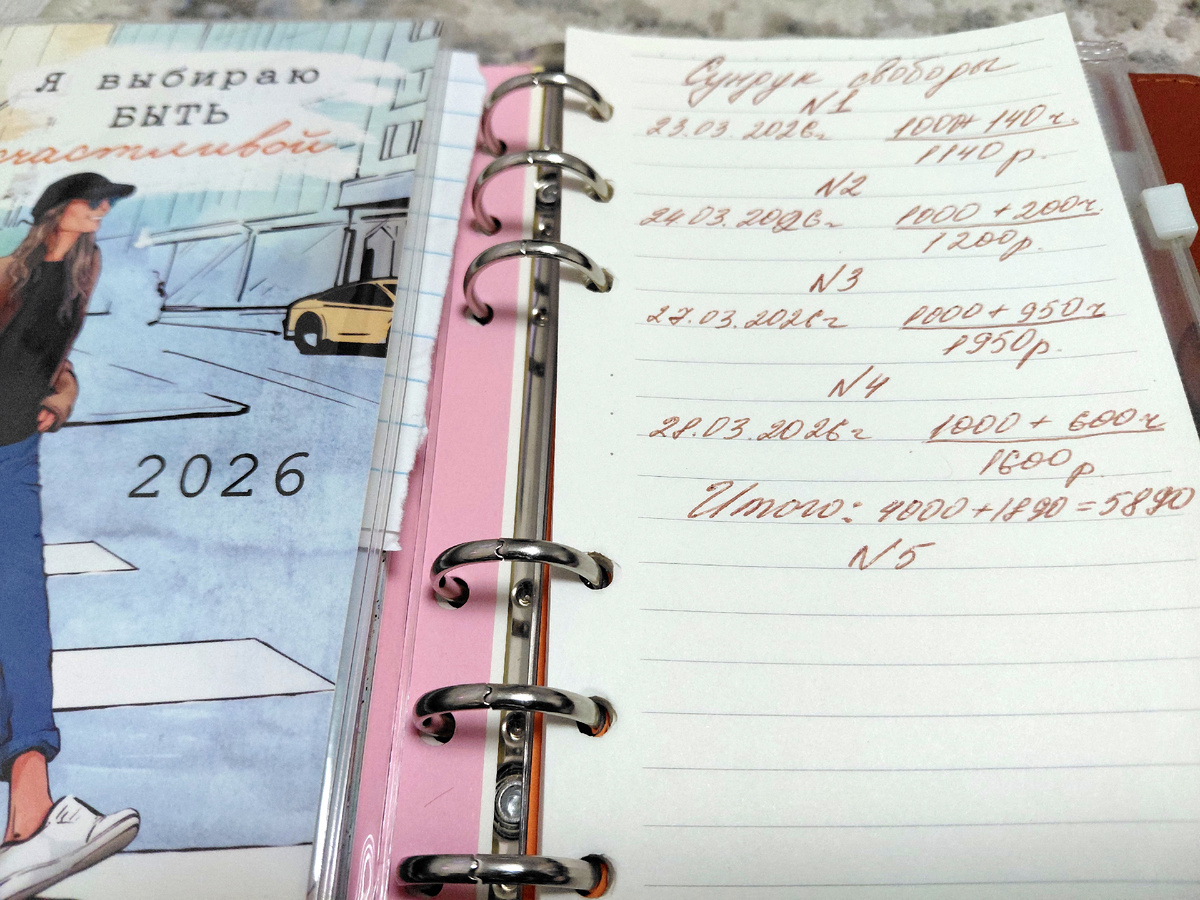 Я выбираю
БЫТЬ
счастливой
2026
Сундук свободы
N1
23.03.2026г 1000+140ч.
1140р.
N2
24.03.2026г 1000+200ч.
1200р.
N3
27.03.2026г 1000+950ч
1950р.
N4
28.03.2026г 1000+600ч
1600р
Итого: 4000+1890=5890
N5